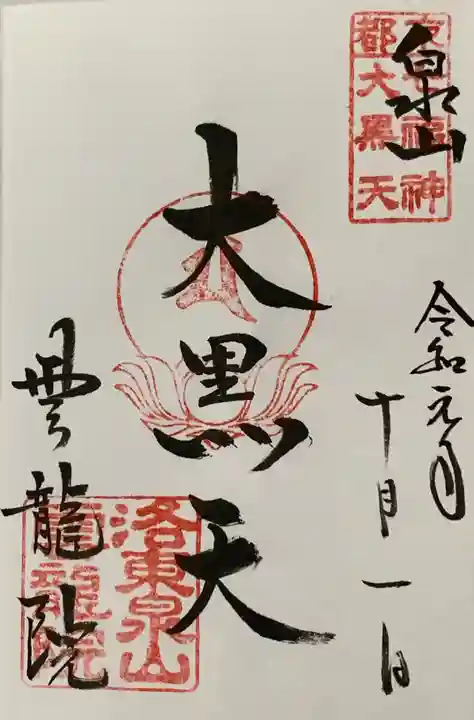 泉山
京七福神
都大黒天
令和元年
十月一日
大黒天
雲龍院
洛東泉山
雲龍院